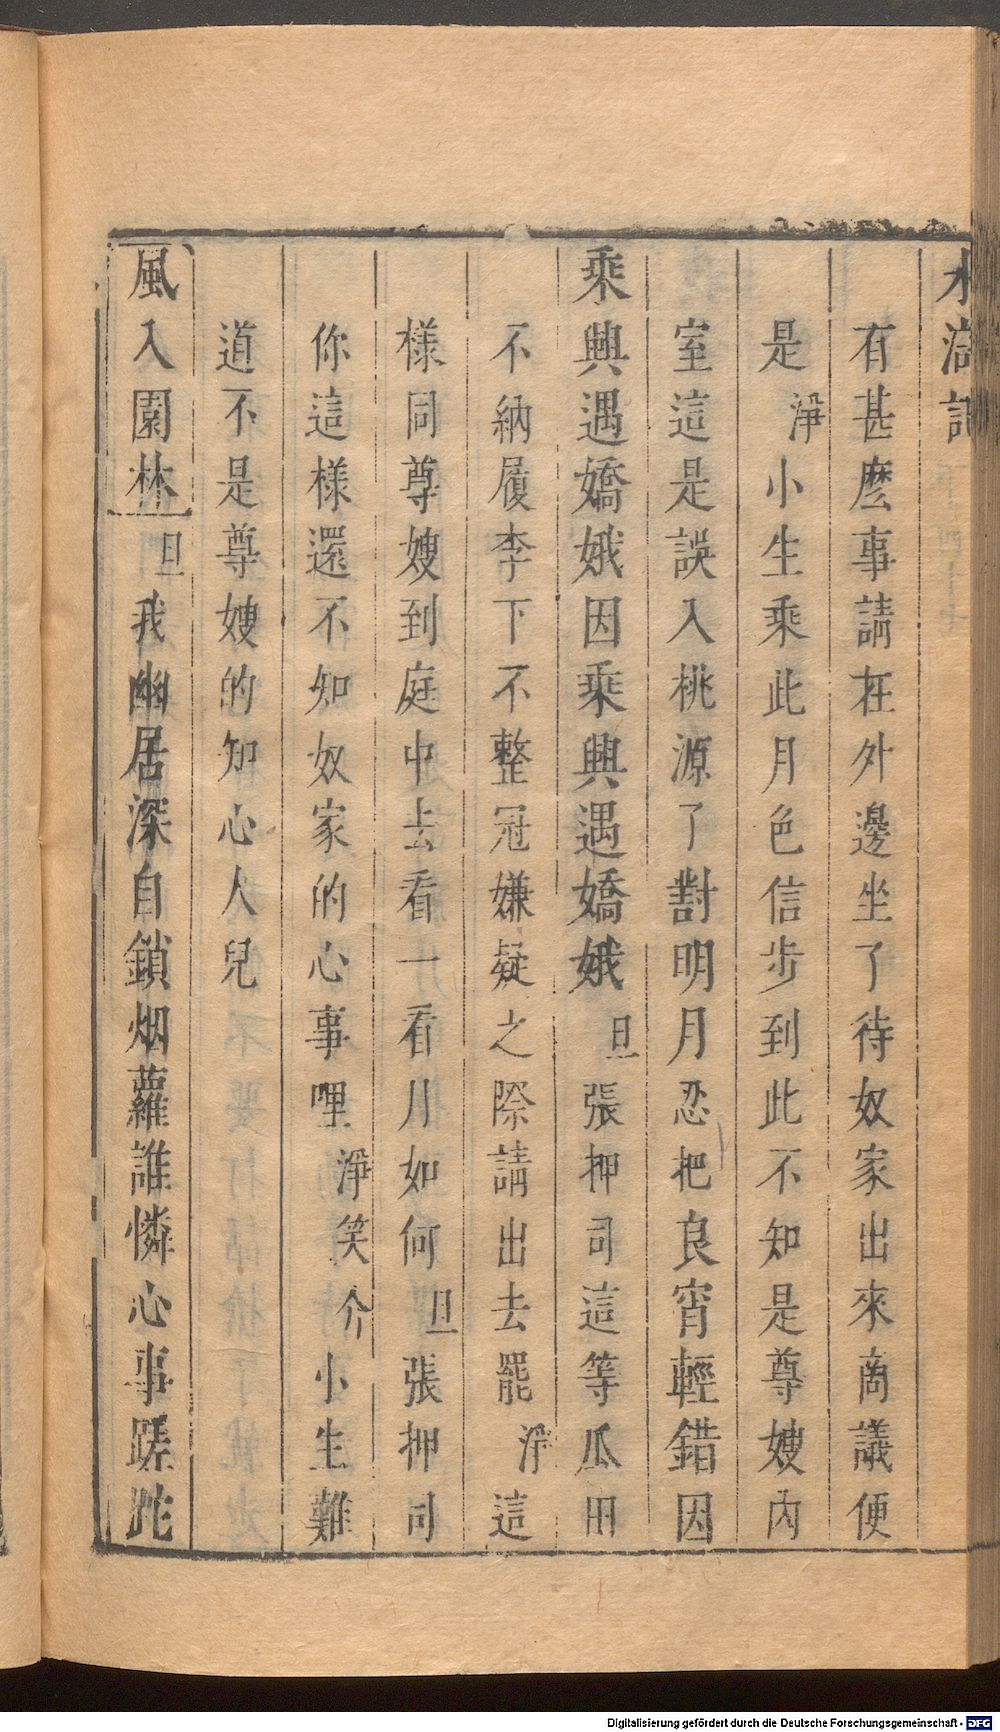 水滸記
有甚麽事請在外邊坐了待奴家出來商議便
是淨小生乘此月色信步到此不知是尊嫂內
室這是誤入桃源了對明月忍把良宵輕錯因
乘興遇嬌娥因乘興遇嬌娥旦張押司這等瓜田
不納履李下不整冠嫌疑之際請出去罷淨這
樣同尊嫂到庭中去看一看月如何旦張押司
你這樣還不知奴家的心事哩淨笑介小生難
道不是尊嫂的知心人兒
風入園林旦我幽居深自鎖烟蘿誰憐心事蹉跎
Digitalisierung gefördert durch die Deutsche Forschungsgemeinschaft - DFG